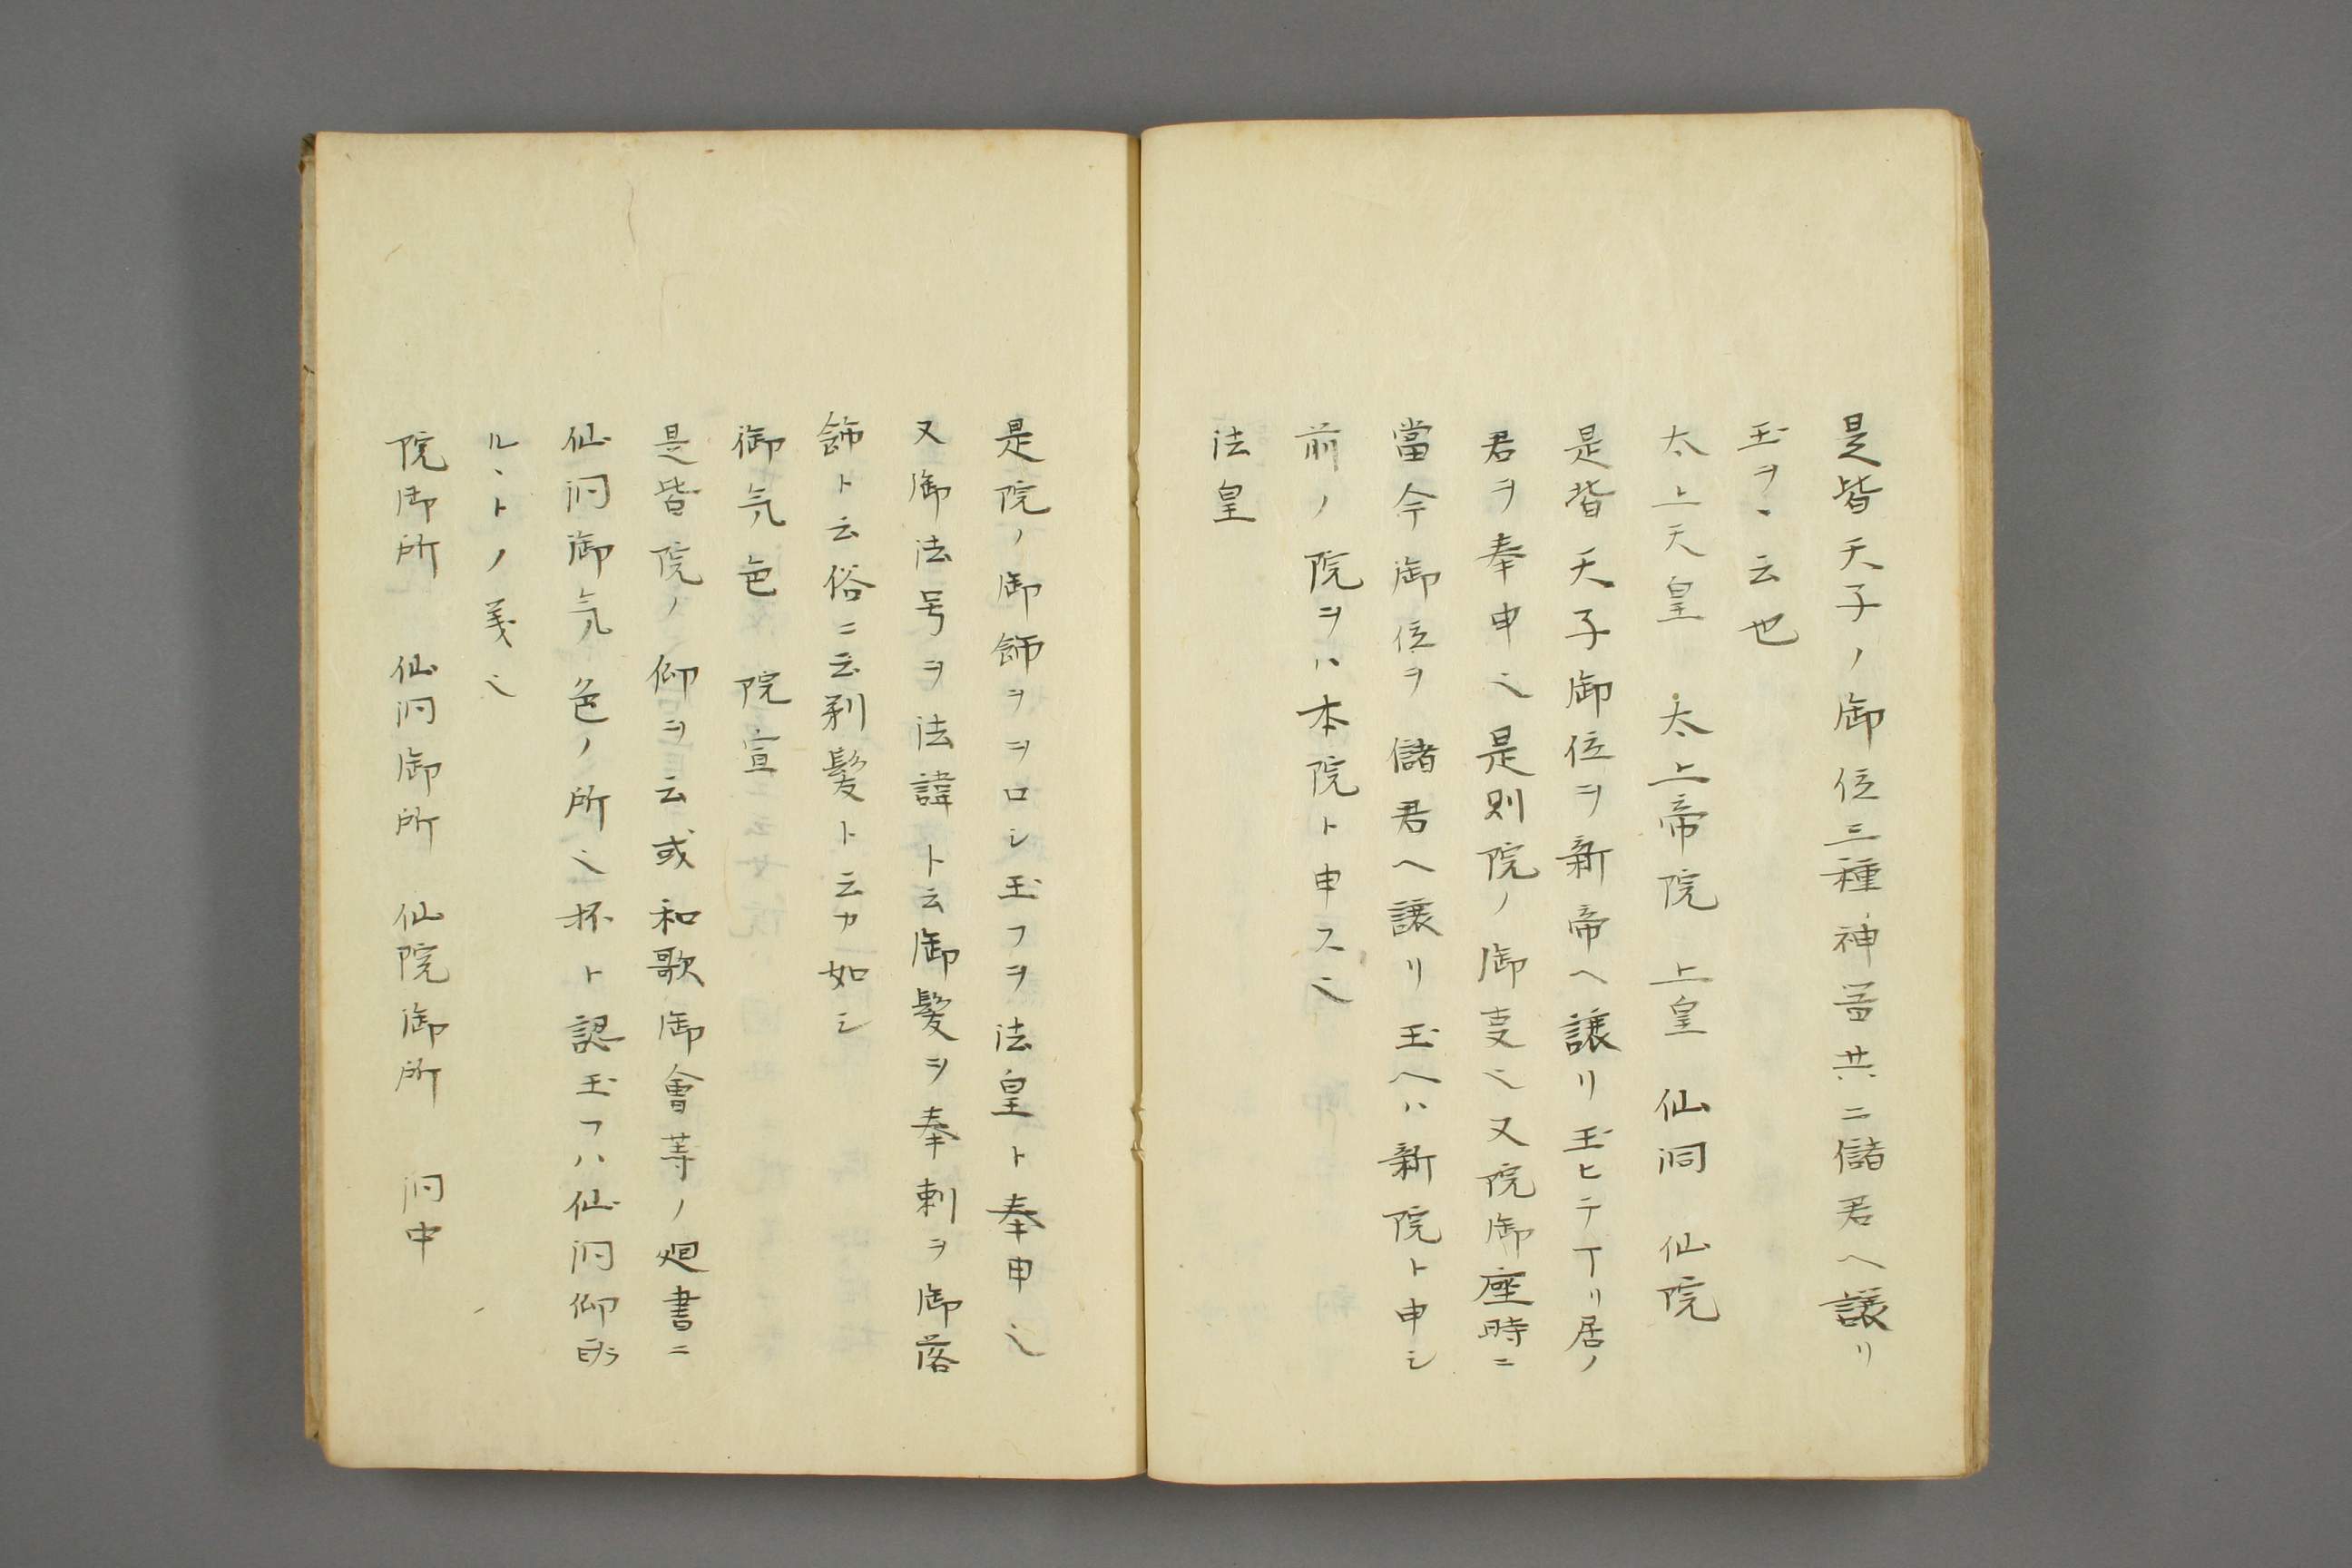 是皆天子ノ御位三種神器共ニ儲君ヘ譲リ
玉ヲヽ云也
太上天皇　太上帝院　上皇　仙洞　仙院
是皆天子御位ヲ新帝ヘ譲リ玉ヒテ下リ居ノ
君ヲ奉申也是則院ノ御叓也又院御座時ニ
當今御位ヲ儲君ヘ譲リ玉ヘハ新院ト申シ
前ノ院ヲハ本院ト申ス也
法皇
是院ノ御飾ヲヲロシ玉フヲ法皇ト奉申也
又御法号ヲ法諱ト云御髪ヲ奉剃ヲ御落
飾ト云俗ニ云剃髪ト云カ如シ
御気色　院宣
是皆院ノ仰ヲ云或和歌御會等ノ廻書ニ
仙洞御気色ノ所也杯ト認玉フハ仙洞仰出サ
ルヽトノ義也
院御所　仙洞御所　仙院御所　洞中